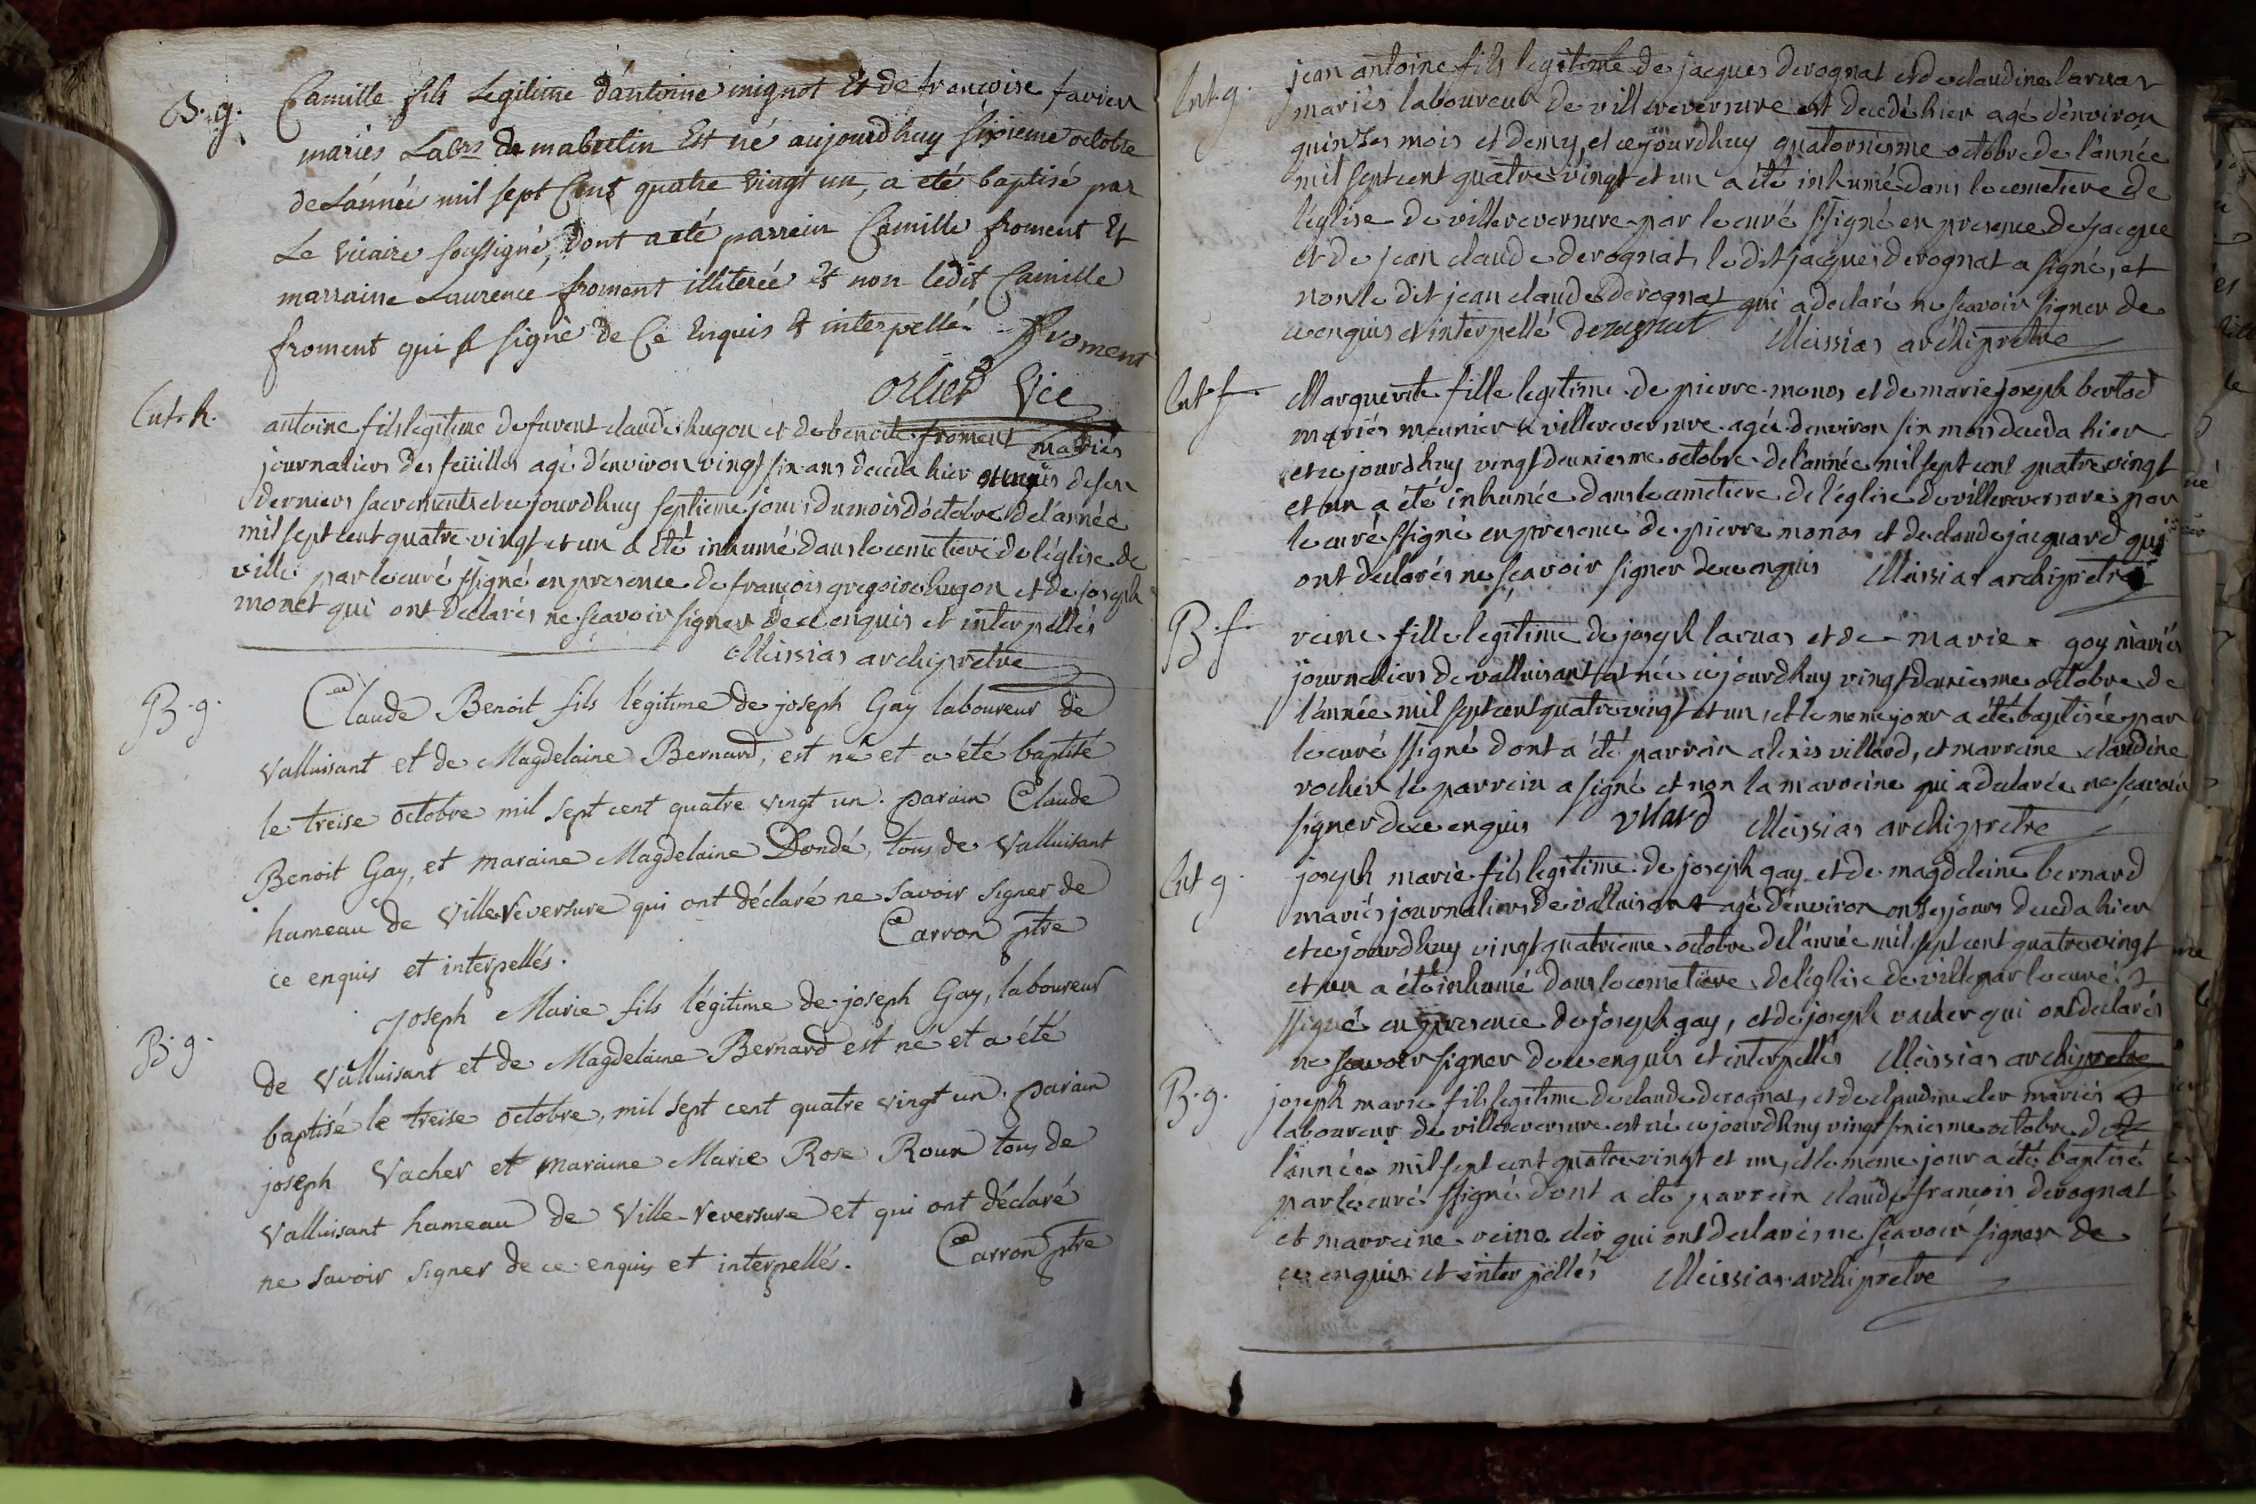 B. g.
Camille fils Legitime d'antoine mignot Et de françoise favier
mariés Labrs de mabutin Est né aujourdhuy sixieme octobre
de L'année mil sept Cent quatre vingt un, a eté baptisé par
Le vicaire soussigné, dont a eté parrein Camille froment Et
marraine Laurence froment illiterée et non ledit Camille
froment qui a signé de Ce Enquis Et interpellé. froment
orlier Vice
Ent. h.
antoine fils legitime de fuent claude hugon et de benoite froment mariés
journaliers des feüilles agé d'environ vingt six ans deceda hier et muni de ses
derniers sacrements et ce jourdhuy septieme jour du mois d'octobre de l'année
mil sept cent quatre vingt et un a été inhumé dans le cemetiere de l'église de
ville par le curé ssigné en presence de françois gregoire hugon et de joseph
monet qui ont declarés ne scavoir signer de ce enquis et interpellés
Meissias archipretre
B. g.
Claude Benoit fils légitime de joseph Gay laboureur de
Valluisant et de Magdelaine Bernard, est né et a été baptisé
le treise octobre mil sept cent quatre vingt un. parain Claude
Benoit Gay, et maraine Magdelaine Dondé, tous de Valluisant
hameau de Ville reversure qui ont déclaré ne savoir signer de
ce enquis et interpellés. Carron ptre
B. g.
Joseph Marie fils légitime de joseph Gay, laboureur
de Valluisant et de Magdelaine Bernard est né et a été
baptisé le treise octobre, mil sept cent quatre vingt un. parain
joseph Vacher et maraine Marie Rose Roux tous de
Valluisant hameau de Ville-reversure et qui ont déclaré
ne savoir signer de ce enquis et interpellés. Carron ptre
Ent. g.
jean antoine fils legitime de jacques derognat et de claudine laruas
mariés laboureur de villereversure est decedé hier agé d'environ
quinses mois et demy, et cejourdhuy quatorziesme octobre de l'année
mil sept cent quatre vingt et un a été inhumé dans le cemetiere de
l'église de villereversure par le curé ssigné en presence de jacque
et de jean claude derognat, le dit jacques derognat a signé, et
non le dit jean claude derognat qui a declaré ne scavoir signer de
ce enquis et interpellé derognat Meissias archipretre
Ent. f.
Marguerite fille legitime de pierre monos et de marie joseph bertod
mariés meunier a villereversure agée denviron six mois deceda hier
et ce jourdhuy vingt deuxiesme octobre de l'année mil sept cent quatre vingt
et un a été inhumée dans le cemetiere de l'église de villereversure par
le curé ssigné en presence de pierre monos et de claude jacquard qui
ont declarés ne scavoir signer de ce enquis Meissias archipretre
B. f.
reine fille legitime de joseph laruas et de marie goy mariés
journaliers de valluisant est née ce jourdhuy vingt deuxiesme octobre de
l'année mil sept cent quatre vingt et un, et le meme jour a été baptisée par
le curé ssigné dont a été parrain alexis villard, et marreine claudine
vocher le parrein a signé et non la marreine qui a declarée ne scavoir
signer de ce enquis vilard Meissias archipretre
Ent g.
joseph marie fils legitime de joseph gay et de magdeleine bernard
mariés journaliers de valluisant agé d'environ onses jours deceda hier
et ce jourdhuy vingt quatrieme octobre de l'année mil sept cent quatre vingt
et un a été inhumé dans le cemetiere de l'église de ville par le curé
ssigné en presence de joseph gay, et de joseph vacher qui ont declarés
ne scavoir signer de ce enquis et interpellés Meissias archipretre
B. g.
joseph marie fils legitime de claude derognat, et de claudine cler mariés
laboureur de villereversure est né ce jourdhuy vingt sixiesme octobre de
l'année mil sept cent quatre vingt et un, et le meme jour a été baptisé
par le curé ssigné dont a été parrein claude françois derognat
et marreine reine cler qui ont declarés ne scavoir signer de
ce enquis et interpellés Meissias archipretre